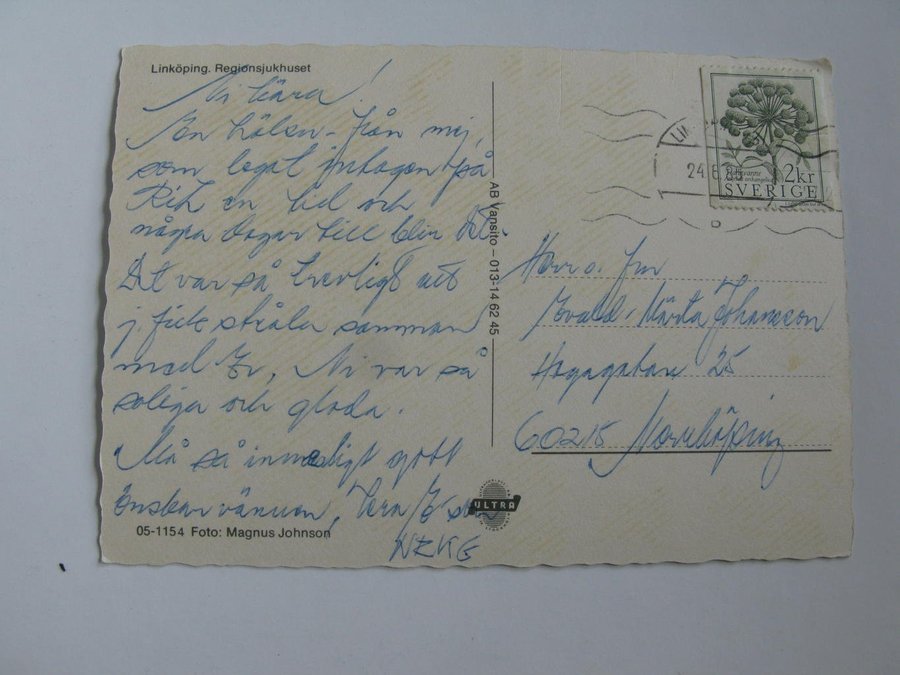 Linköping. Regionsjukhuset
Ni kära!
En hälsn - från mig,
som legat intagen på
RiL en tid och
några dagar till blir det.
Det var så trevligt att
j. fick stråla samman
med Er. Ni var så
soliga och glada.
Må så innerligt gott
önskar vännen, Vera
05-1154 Foto: Magnus Johnson
AB Vansito – 013-14 62 45
ULTRA
24.6
2kr
SVERIGE
Herr o. Fru
Evald - Märta Johansson
Hagagatan 25
60215 Norrköping